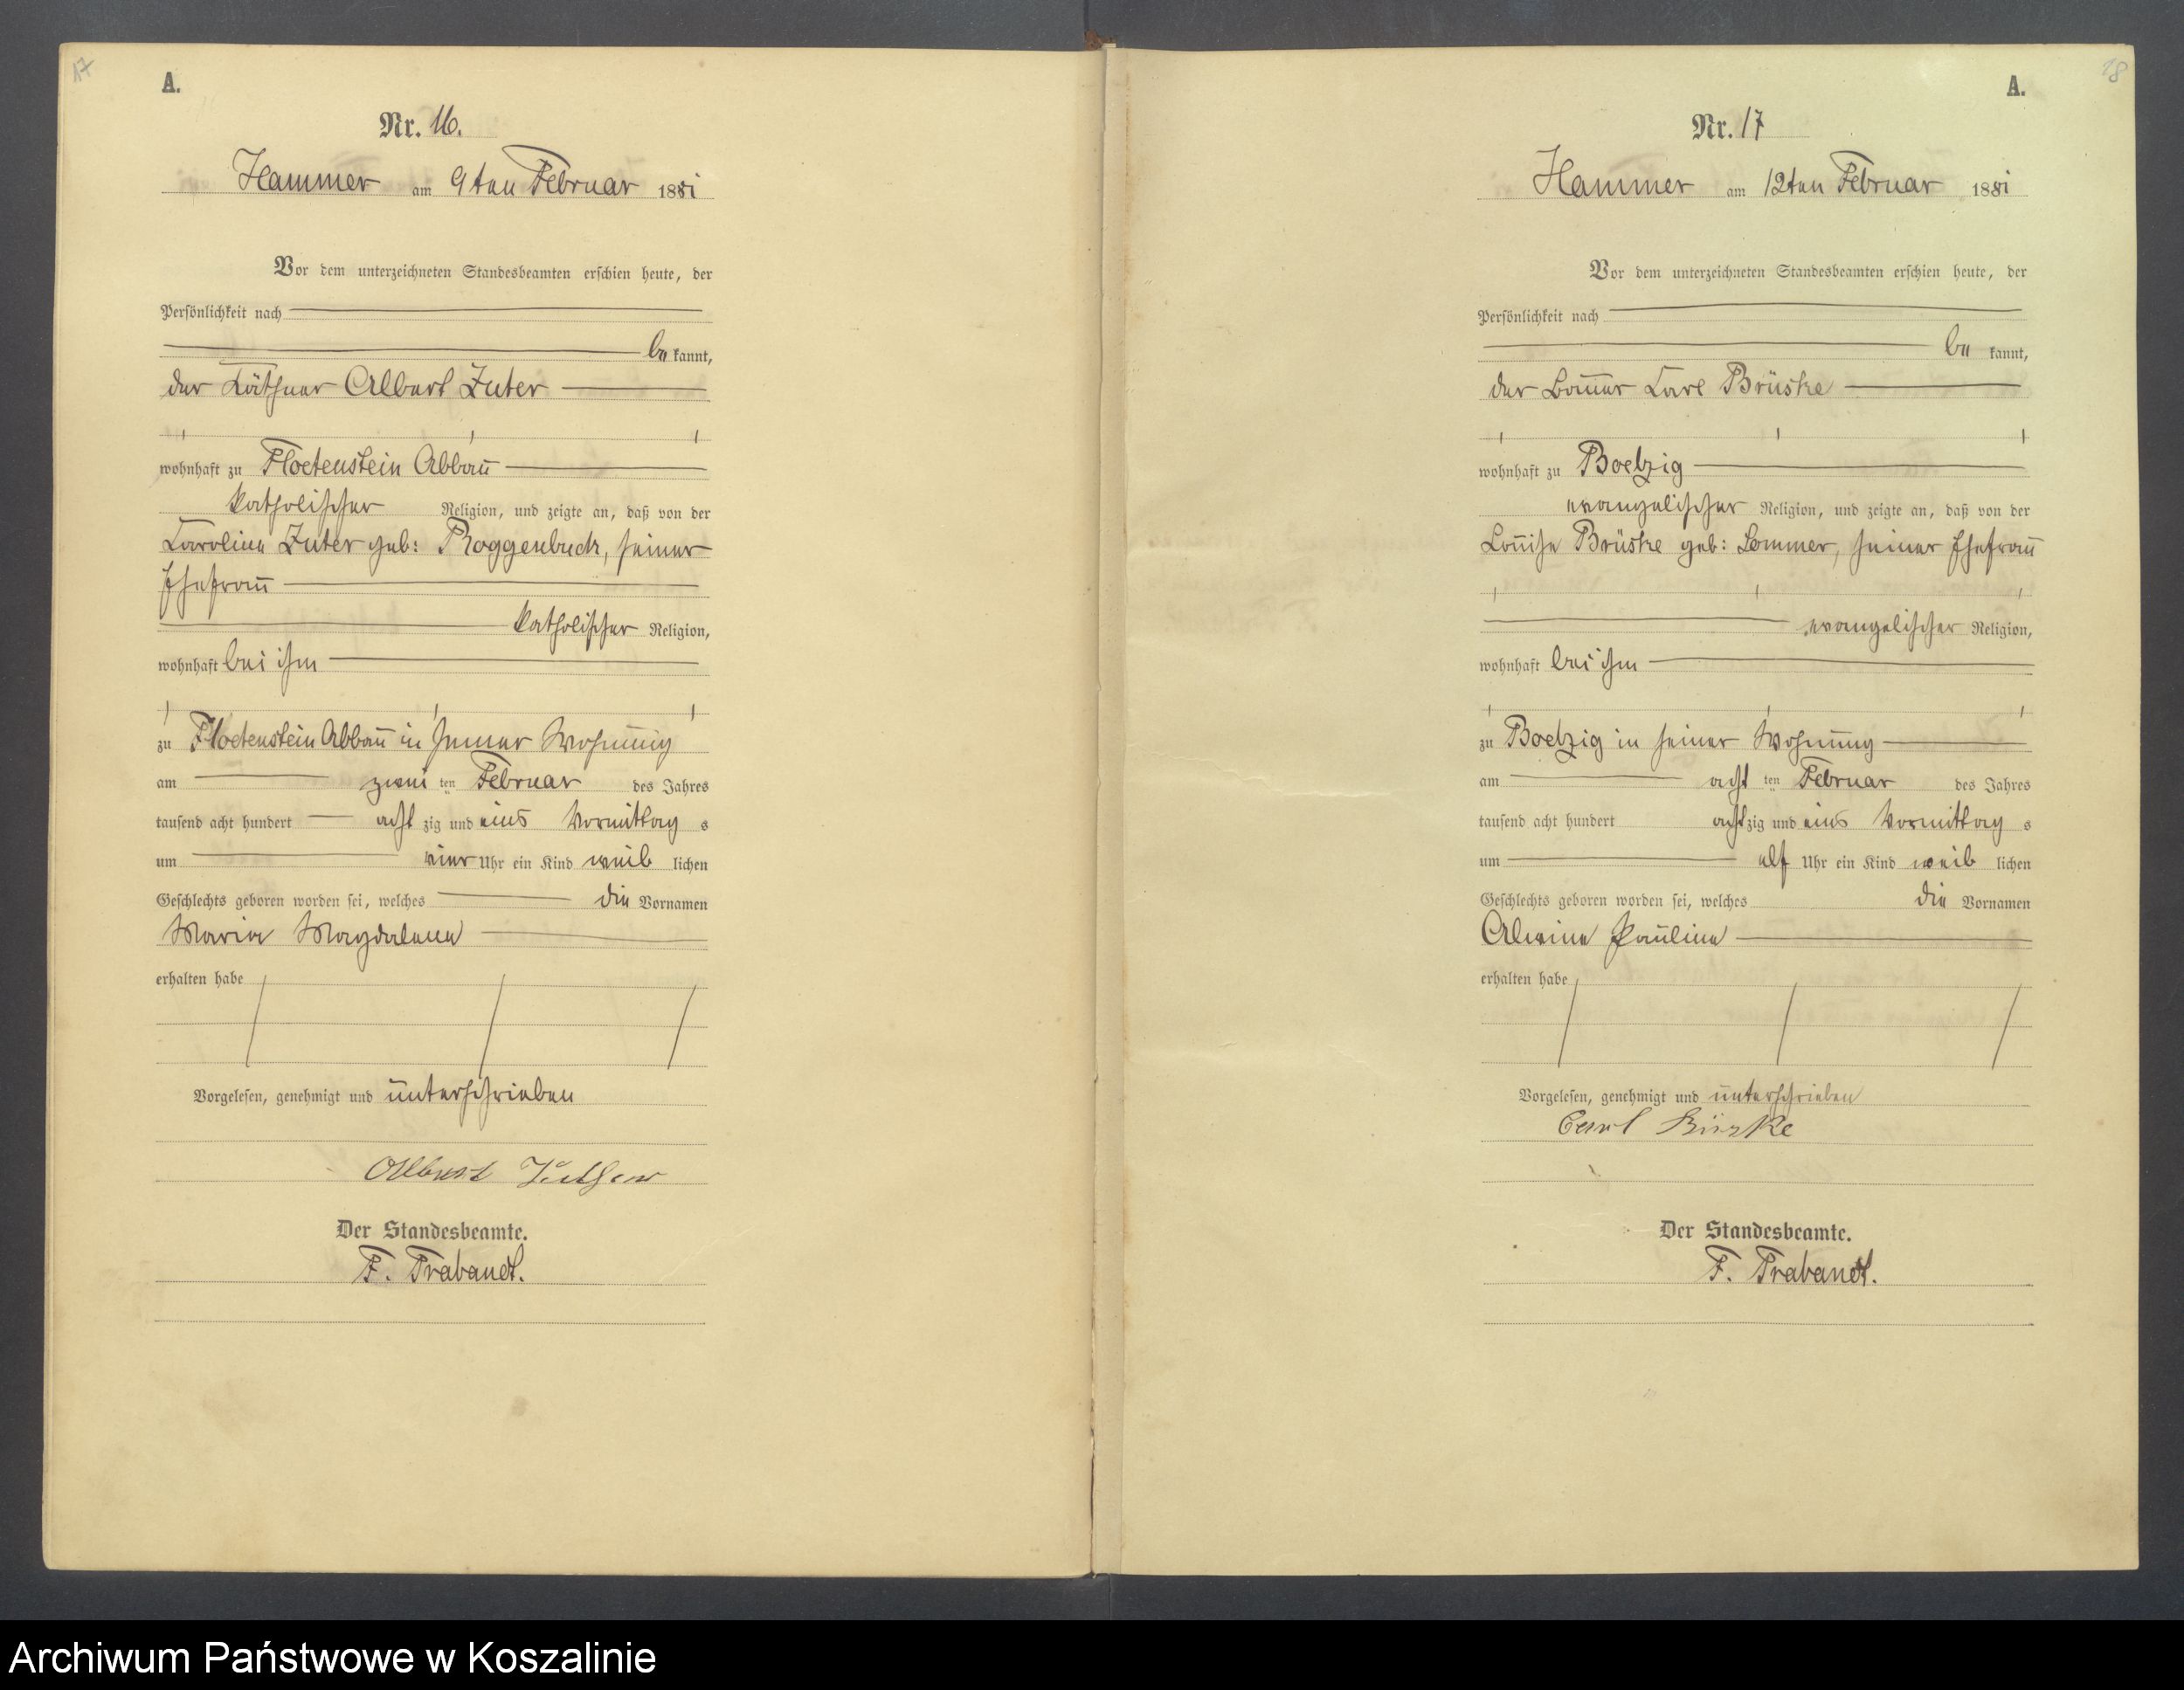 17
A.
Nr. 16.
Hammer am 9ten Februar 1881
Vor dem unterzeichneten Standesbeamten erschien heute, der
Persönlichkeit nach
be kannt,
der Käthner Albert Zuter
wohnhaft zu Floetenstein Abbau
katholischer Religion, und zeigte an, daß von der
Caroline Zuter geb: Roggenbuck, seiner
Ehefrau
katholischer Religion,
wohnhaft bei ihm
zu Floetenstein Abbau in seiner Wohnung
am zwei ten Februar des Jahres
tausend acht hundert acht zig und eins Vormittag s
um vier Uhr ein Kind weib lichen
Geschlechts geboren worden sei, welches die Vornamen
Maria Magdalena
erhalten habe
Vorgelesen, genehmigt und unterschrieben
Albert
Der Standesbeamte.
F. Trabandt.
18
A.
Nr. 17
Hammer am 12ten Februar 1881
Vor dem unterzeichneten Standesbeamten erschien heute, der
Persönlichkeit nach
be kannt,
der Bauer Carl Brüske
wohnhaft zu Boelzig
evangelischer Religion, und zeigte an, daß von der
Louise Brüske geb: Sommer, seiner Ehefrau
evangelischer Religion,
wohnhaft bei ihm
zu Boelzig in seiner Wohnung
am acht ten Februar des Jahres
tausend acht hundert acht zig und eins Vormittag s
um elf Uhr ein Kind weib lichen
Geschlechts geboren worden sei, welches die Vornamen
Alwine Pauline
erhalten habe
Vorgelesen, genehmigt und unterschrieben
Carl
Der Standesbeamte.
F. Trabandt.
Archiwum Państwowe w Koszalinie